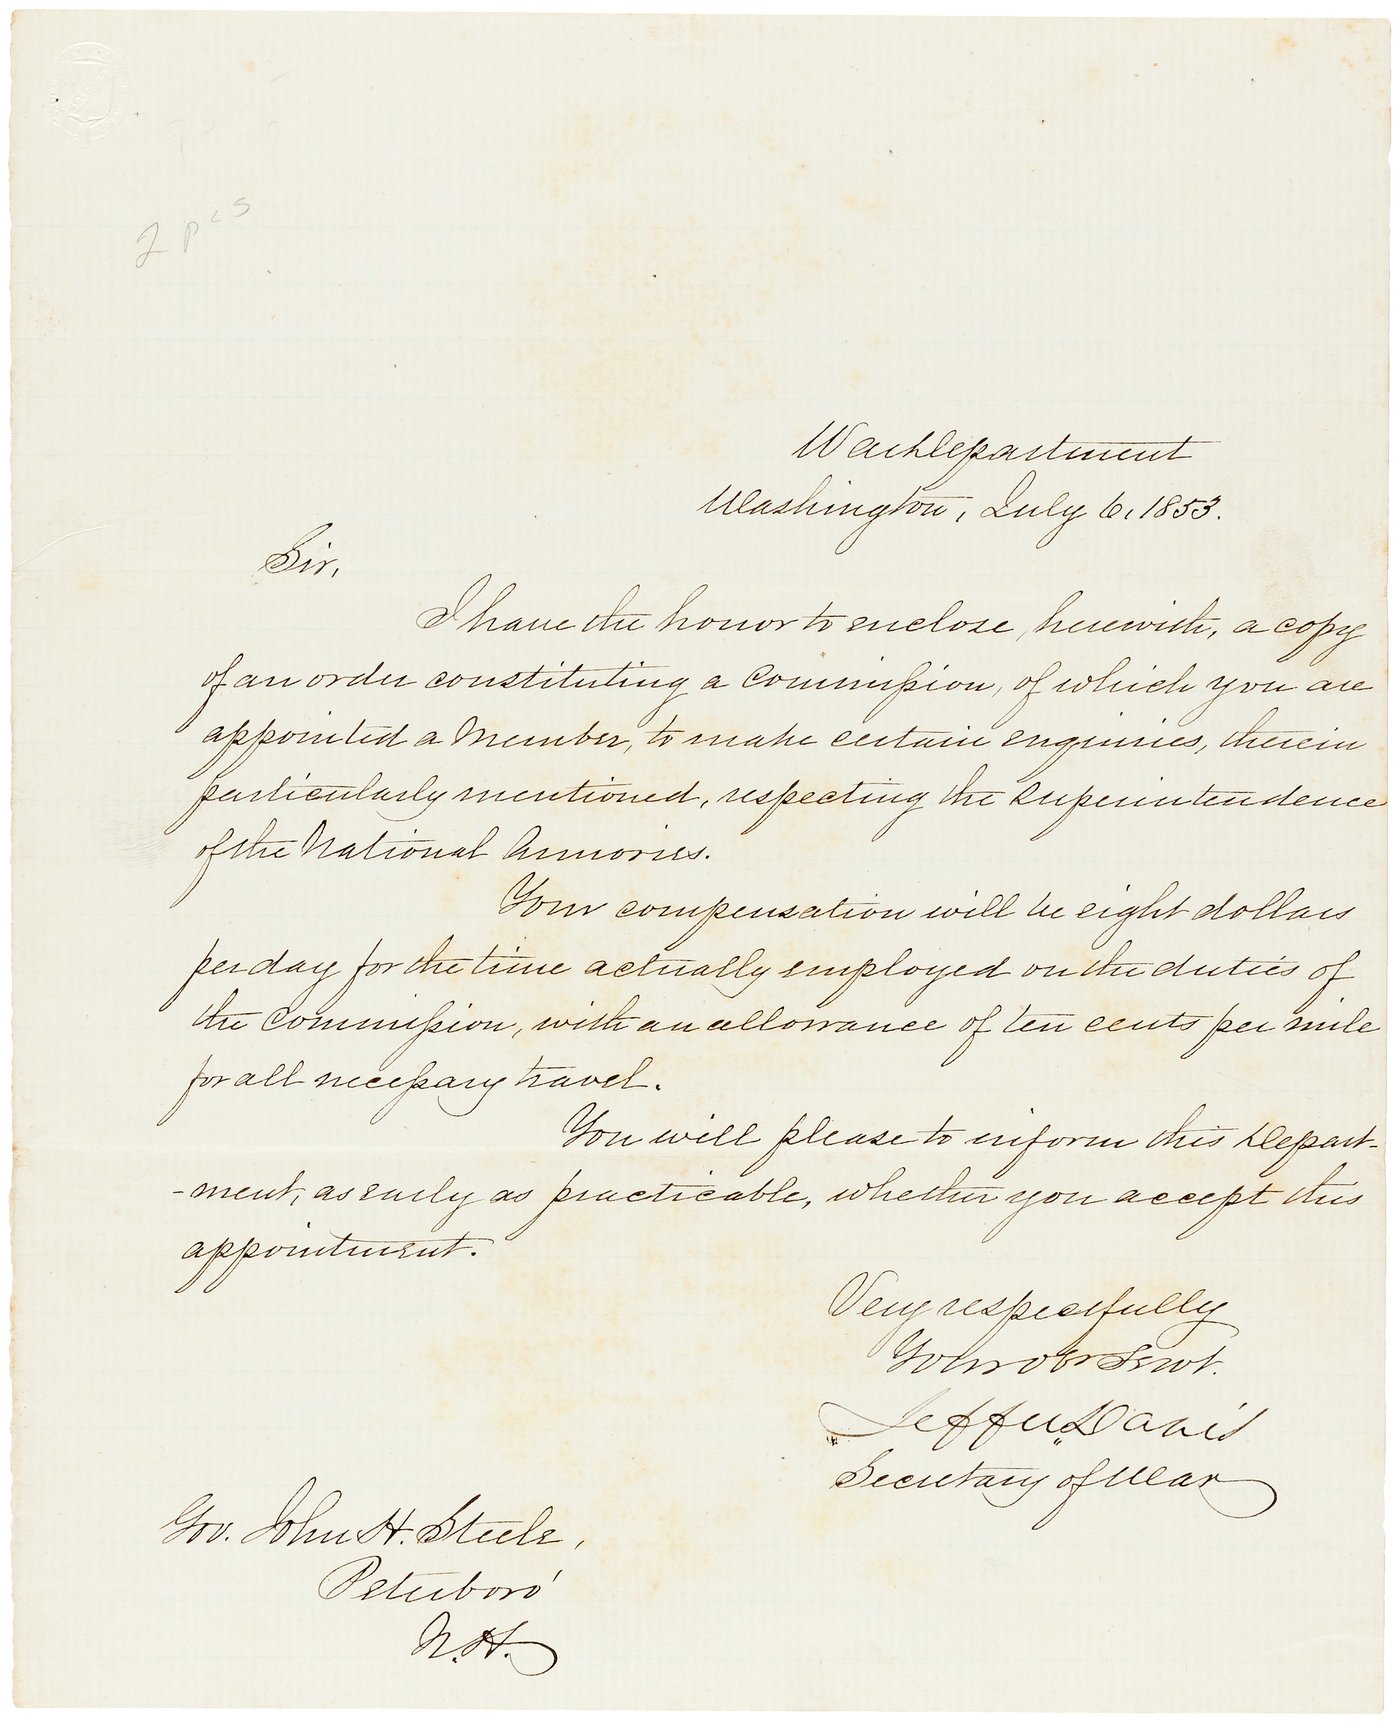 2 pcs
War Department
Washington, July 6, 1853.
Sir,
I have the honor to enclose, herewith, a copy
of an order constituting a Commission, of which you are
appointed a Member, to make certain enquiries, therein
particularly mentioned, respecting the Superintendence
of the National Armories.
Your compensation will be eight dollars
per day for the time actually employed on the duties of
the Commission, with an allowance of ten cents per mile
for all necessary travel.
You will please to inform this Depart-
-ment, as early as practicable, whether you accept this
appointment.
Very respectfully
Your obt Servt.
Jeffer. Davis
Secretary of War
Gov. John H. Steele,
Peterboro'
N.H.